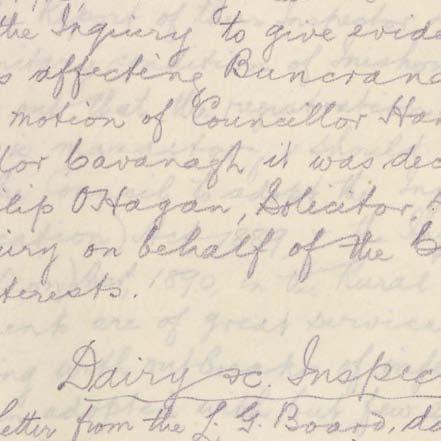 the Inquiry to give evide
s affecting Buncrana
motion of Councillor Har
lor Cavanagh it was dec
ilip O'Hagan, Solicitor,
uiry on behalf of the
terests.
Dairy &c. Inspec
Letter from the L. G. Board, da